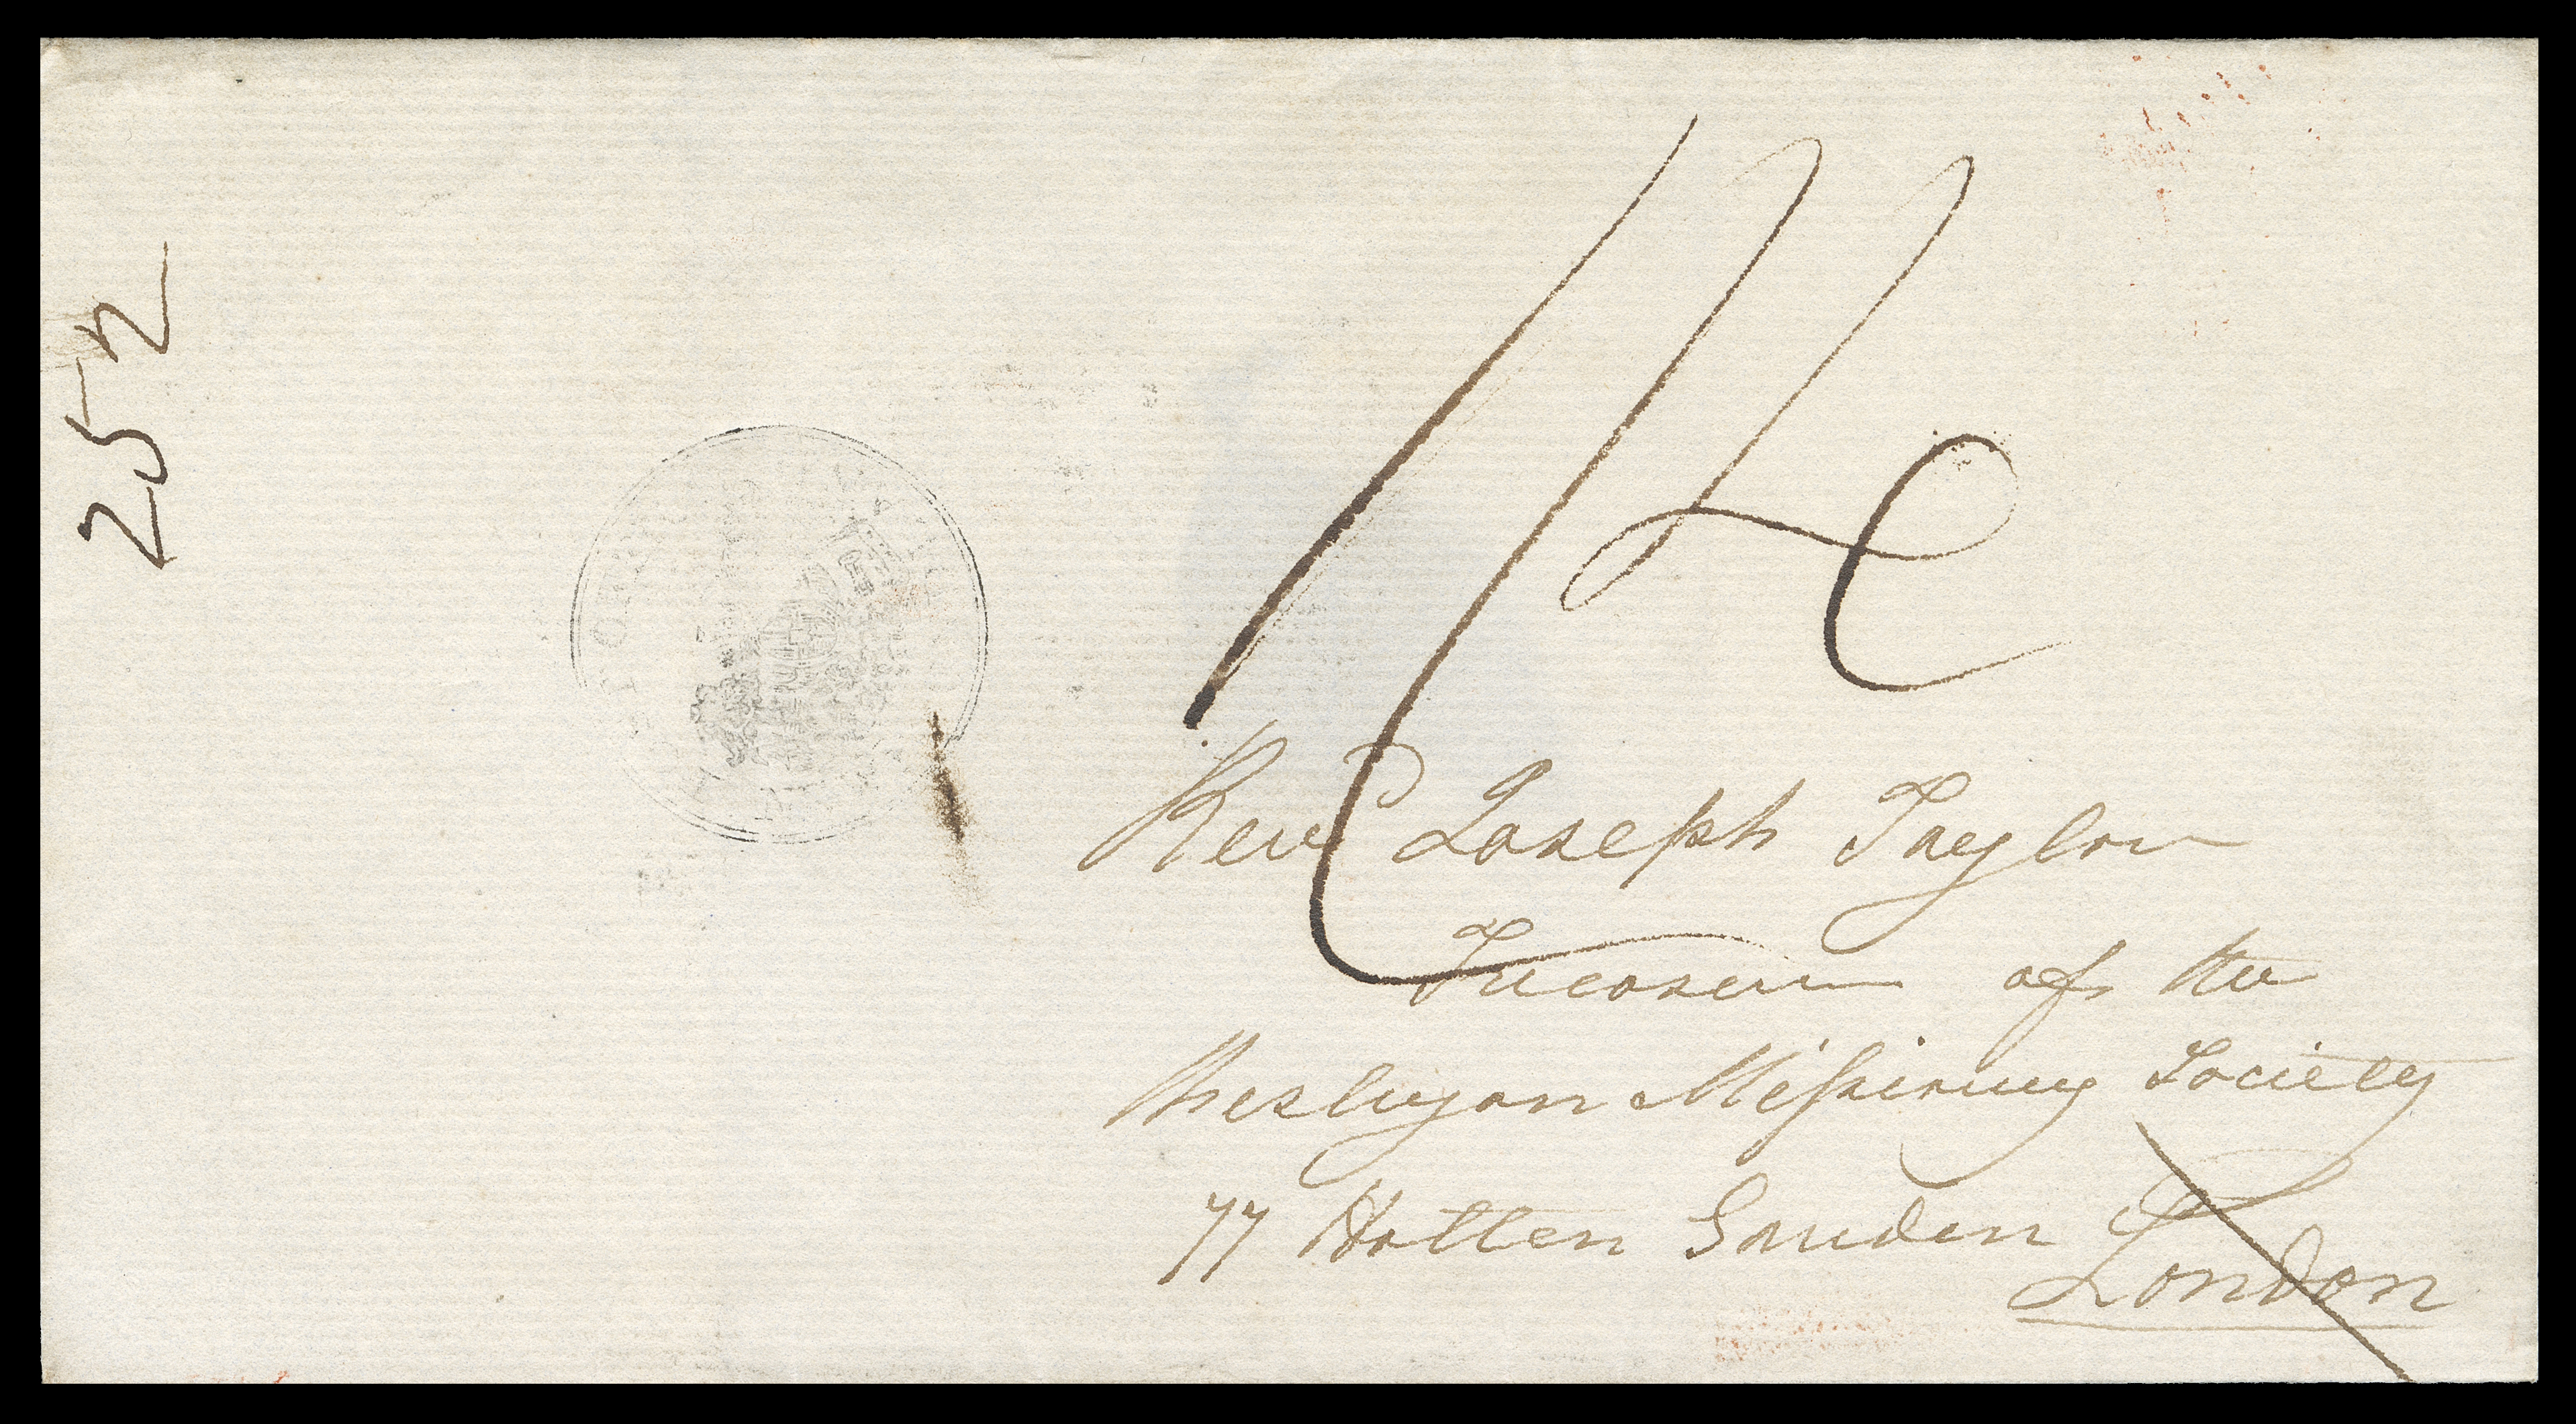 252
Revd Joseph Taylor
Treasurer of the
Wesleyan Mißionary Society
77 Hatten Garden
London